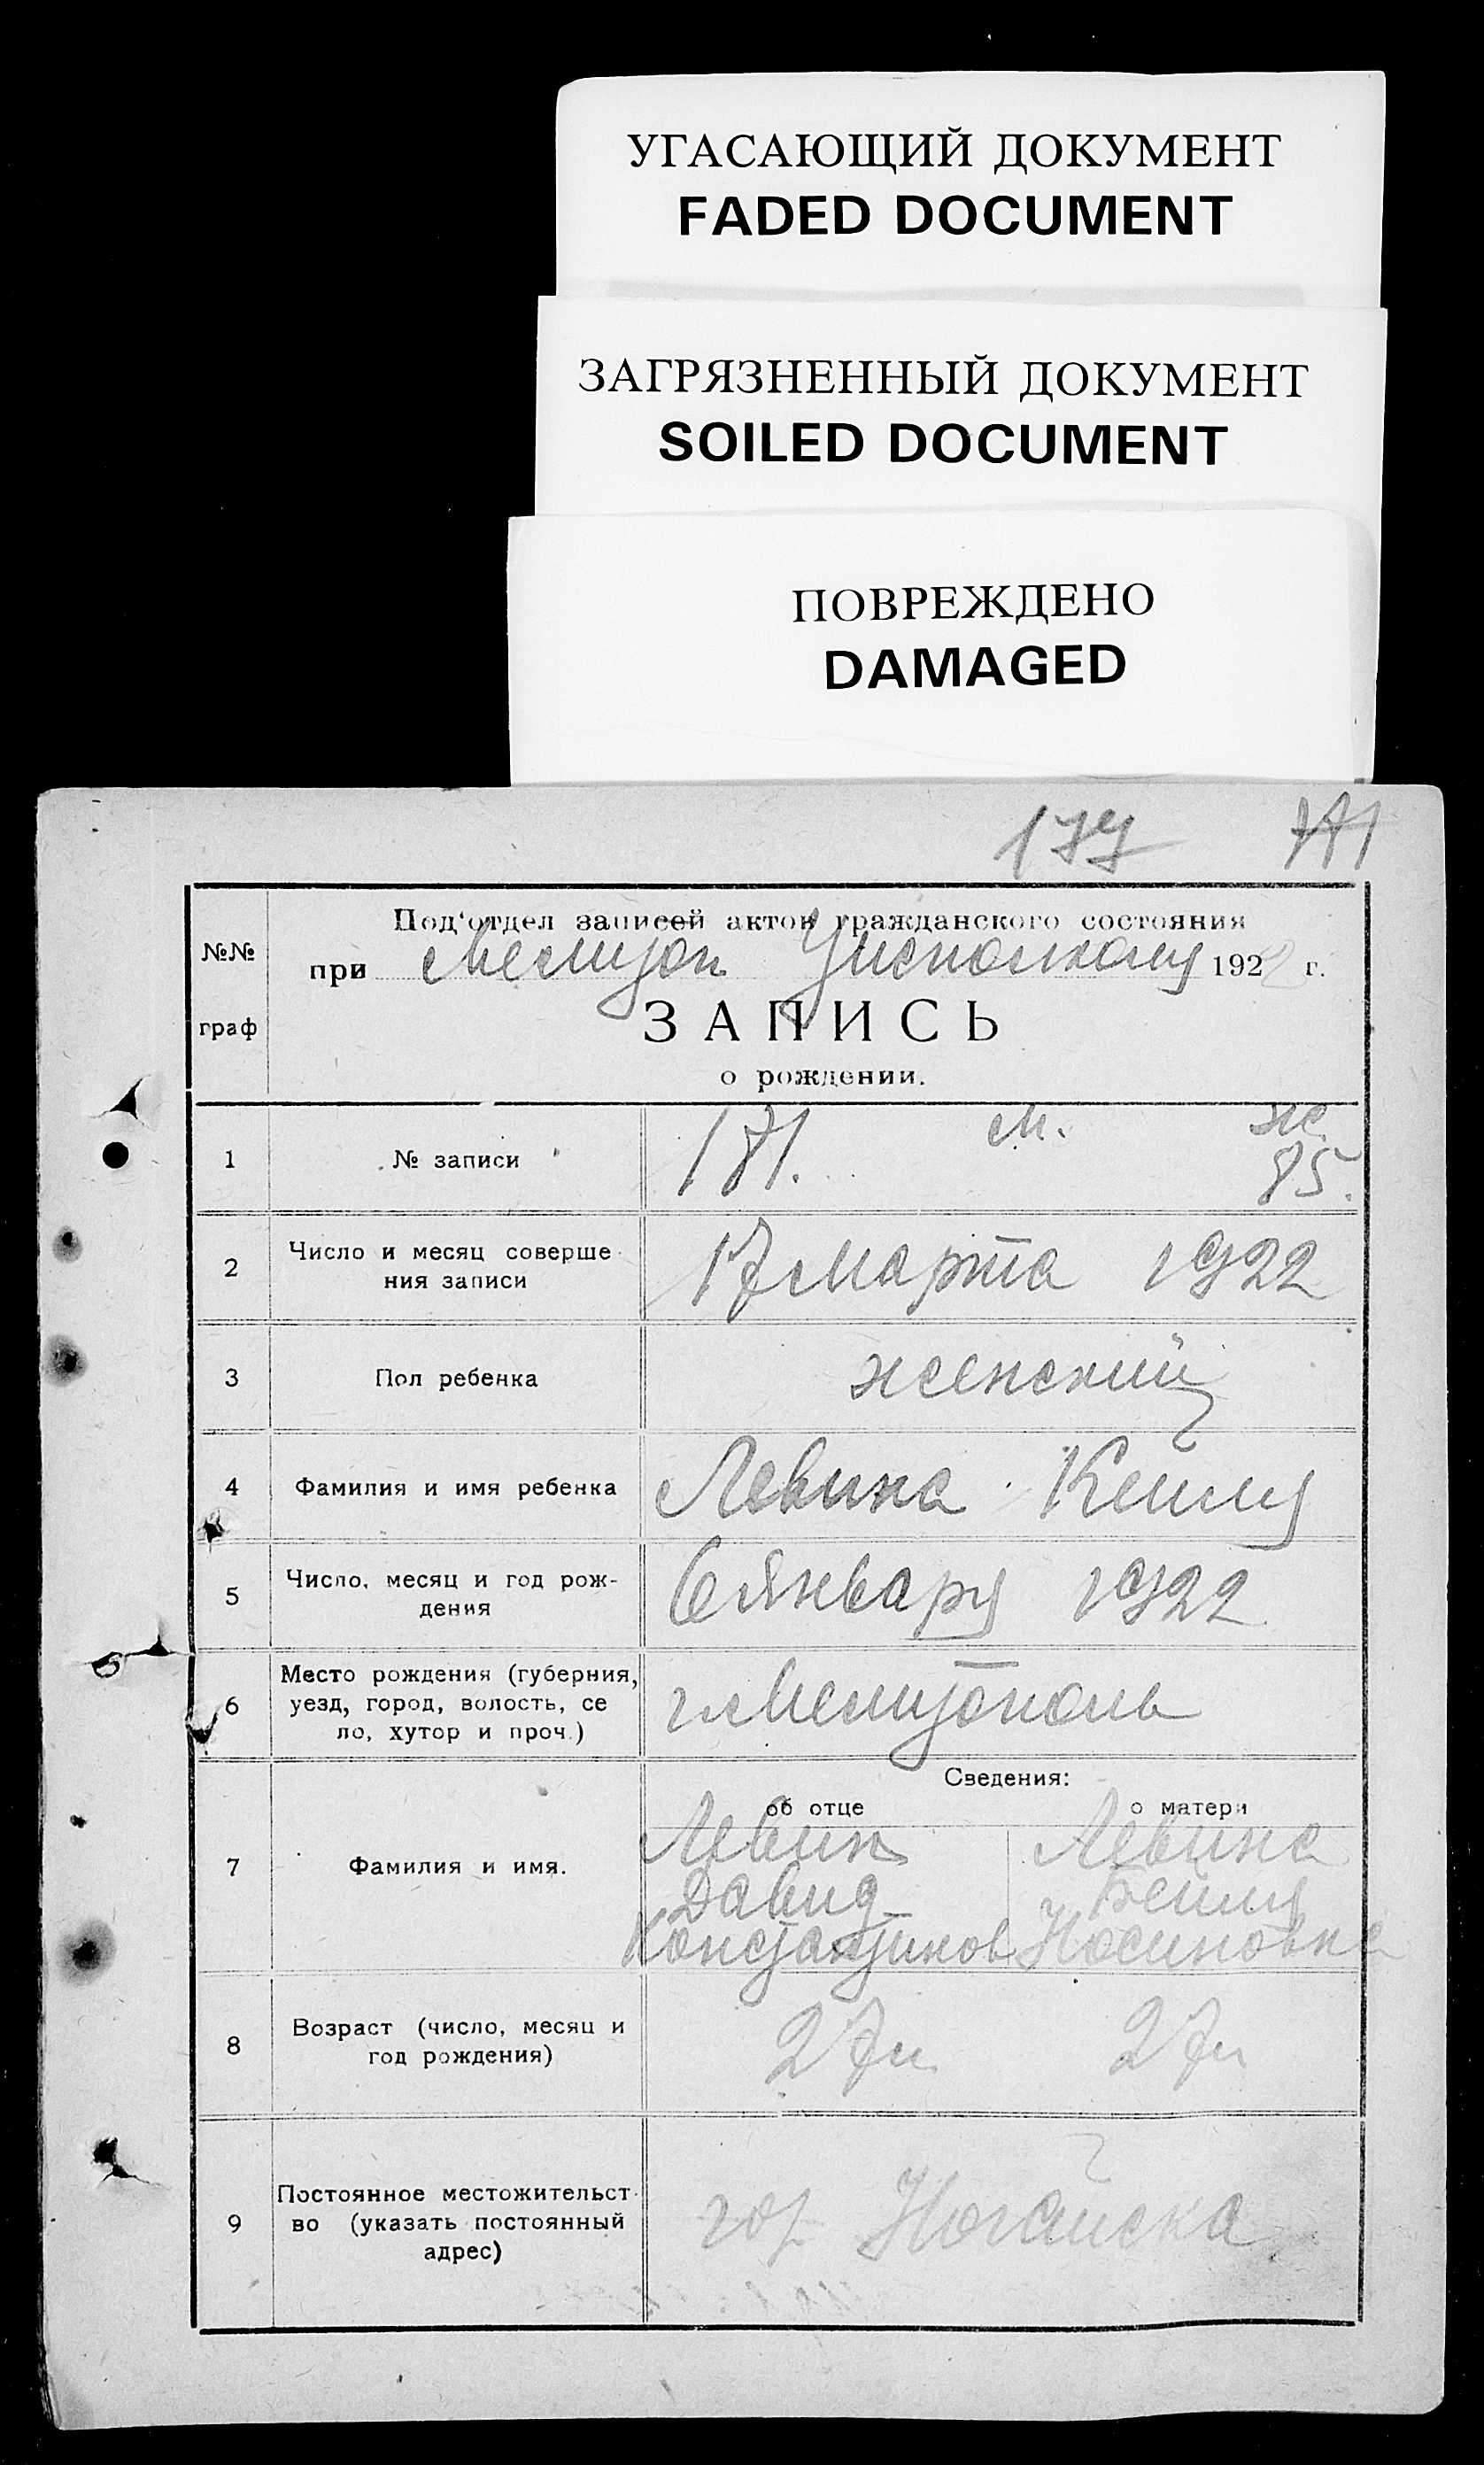 УГАСАЮЩИЙ ДОКУМЕНТ
FADED DOCUMENT
ЗАГРЯЗНЕННЫЙ ДОКУМЕНТ
SOILED DOCUMENT
ПОВРЕЖДЕНО
DAMAGED
№№
граф
Под'отдел записей актов гражданского состояния
при Мелитоп Уисполкому 1922 г.
ЗАПИСЬ
о рождении.
1 № записи 181. м. ж. 85.
2 Число и месяц соверше
ния записи 17 Марта 1922
3 Пол ребенка женский
4 Фамилия и имя ребенка Левина Кейля
5 Число, месяц и год рож-
дения 6 Января 1922
6 Место рождения (губерния,
уезд, город, волость, се
ло, хутор и проч.) г. Мелитополь
Сведения:
об отце о матери
7 Фамилия и имя. Левин Левина
Давид Бейля
Константинов Носиновна
8 Возраст (число, месяц и
год рождения) 27 л 27 л
9 Постоянное местожительст
во (указать постоянный
адрес) гор Ногайска